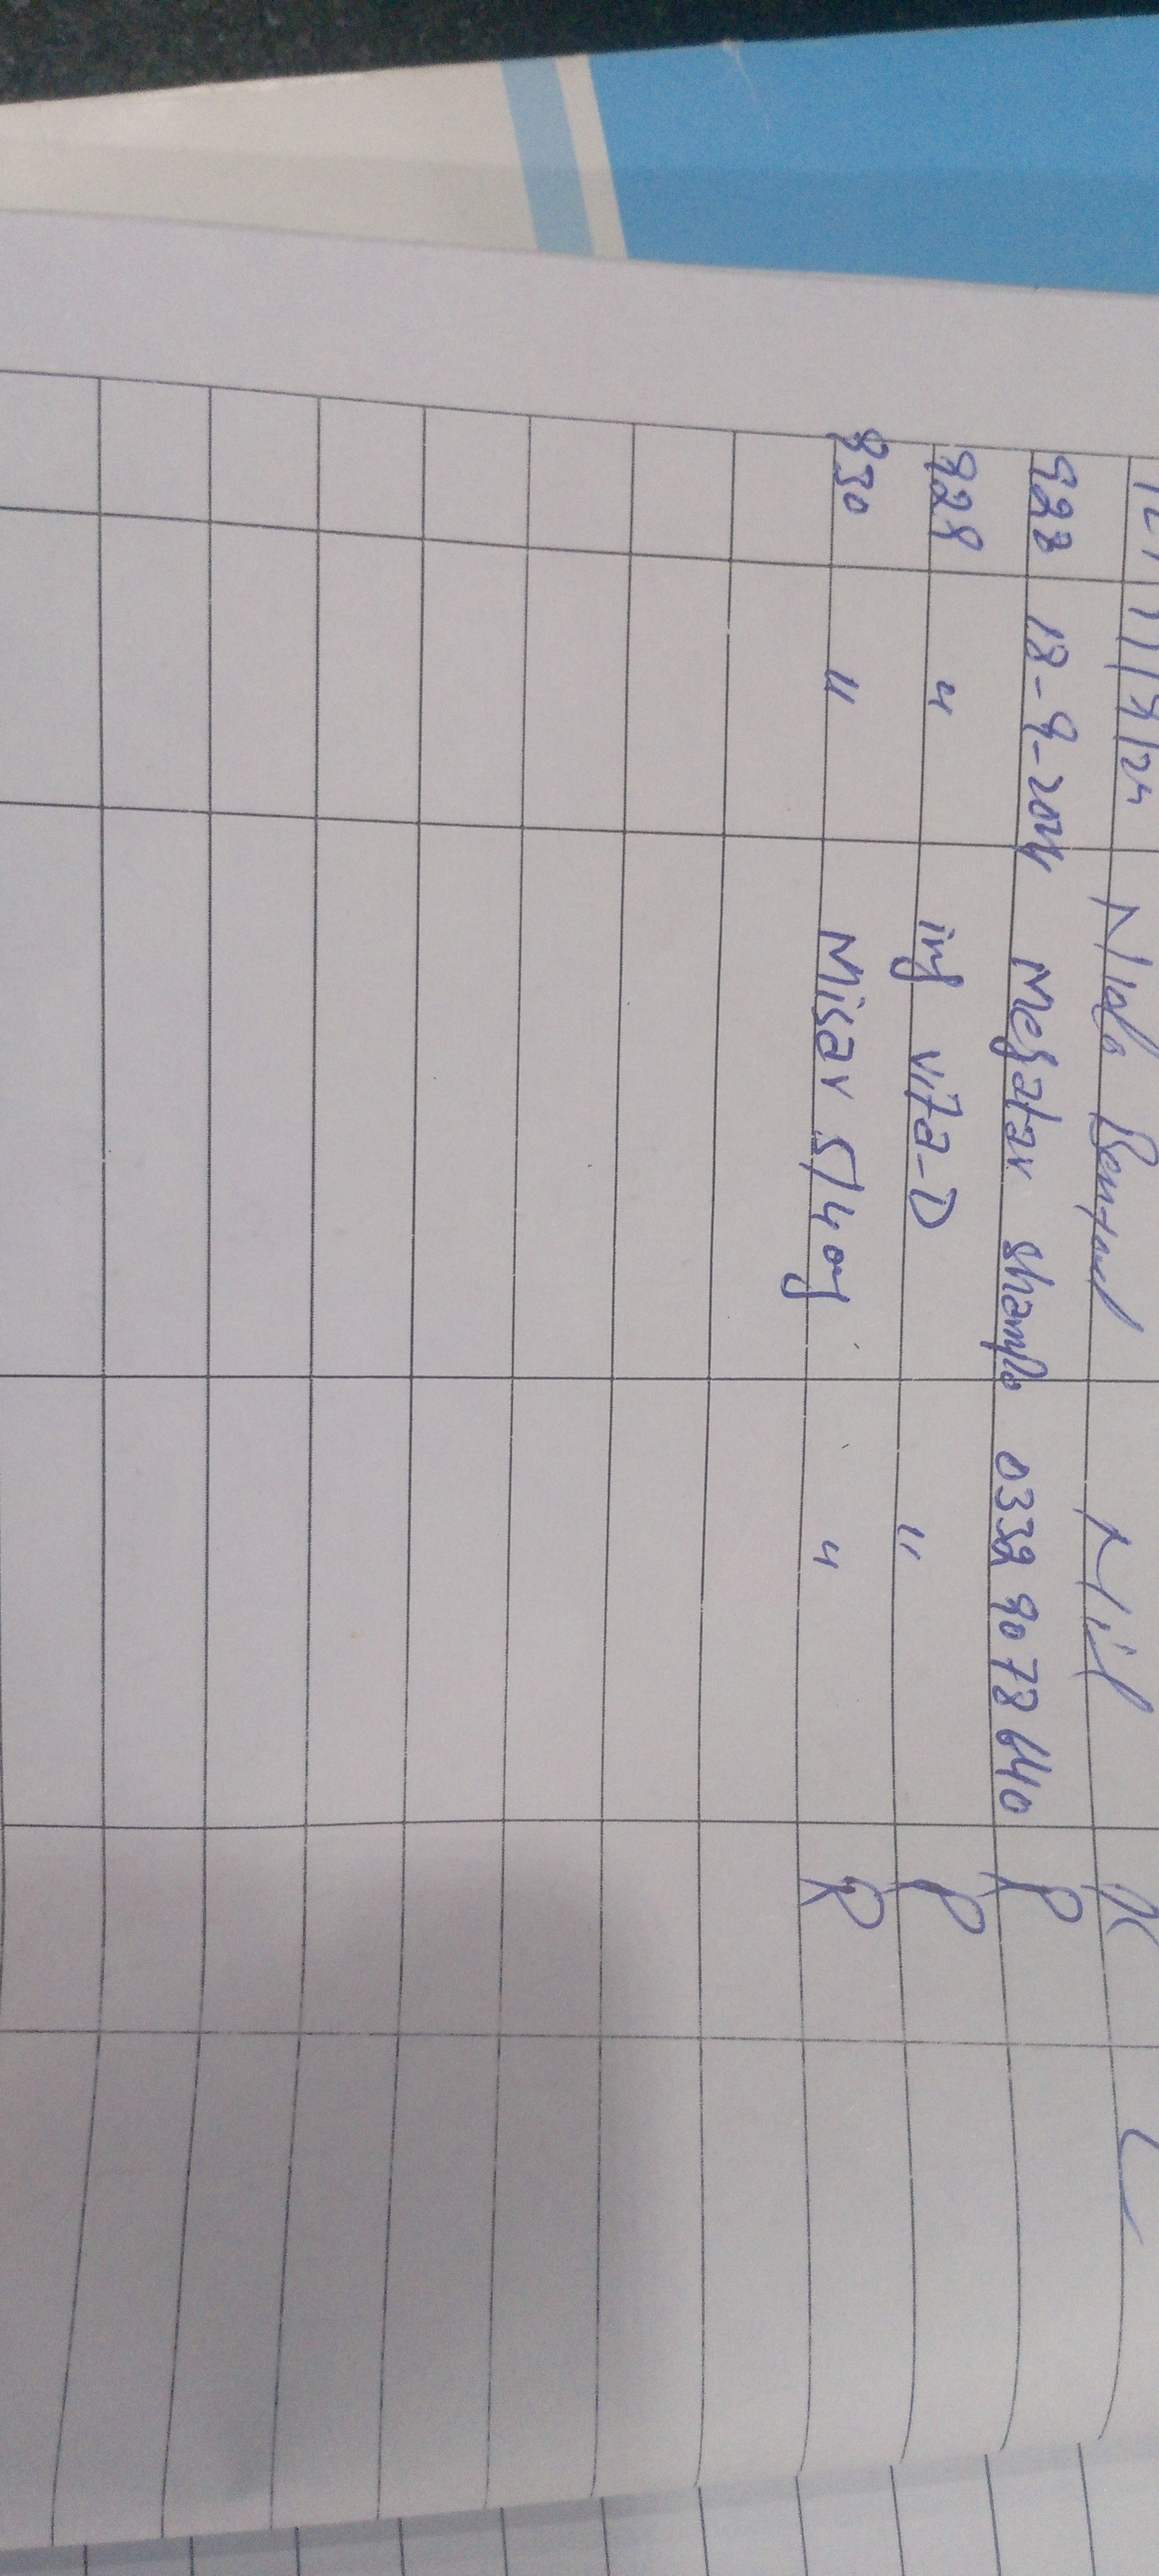 11/9/24 Nil
928 12-9-2024 Megatar shampo 0332 9078640 R
929 " inj vita-D " R
930 " Misar 5/40mg " R